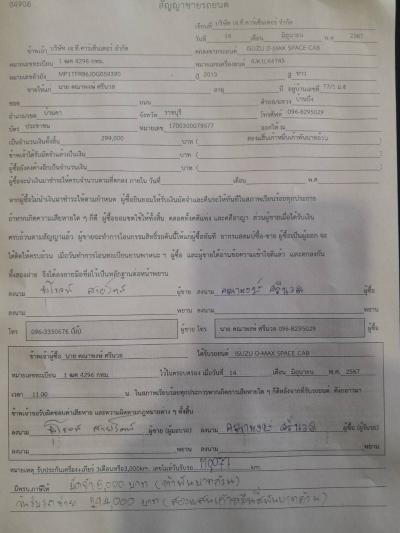 04906
สัญญาขายรถยนต์
เขียนที่ บริษัท เอ.ที.คาร์เซ็นเตอร์ จำกัด
วันที่ 14 เดือน มิถุนายน พ.ศ. 2567
ข้าพเจ้า บริษัท เอ.ที.คาร์เซ็นเตอร์ จำกัด ตกลงขายรถยนต์ ISUZU D-MAX SPACE CAB
หมายเลขทะเบียน 1 ฒศ 4296 กทม. หมายเลขเครื่องยนต์
หมายเลขตัวถัง ปี 2013 สี ขาว
ขายให้แก่ นาย คณาพงษ์ ศรีนวล อายุ ปี อยู่บ้านเลขที่ 77/1 ม.8
ซอย ถนน ตำบล/แขวง
อำเภอ/เขต บ้านคา จังหวัด ราชบุรี โทรศัพท์ 096-8295029
บัตร ประชาชน หมายเลข 1700300079577 ออกให้ ณ
เป็นจำนวนเงินทั้งสิ้น 299,000 บาท ( สองแสนเก้าหมื่นเก้าพันบาทถ้วน
ข้าพเจ้าได้รับมัดจำแล้วเป็นเงิน บาท (
ผู้ซื้อยังคงค้างอีกเป็นจำนวนเงิน บาท (
ผู้ซื้อจะนำเงินมาชำระให้ครบจำนวนตามที่ตกลง ภายใน วันที่ เดือน พ.ศ.
หากผู้ซื้อไม่นำเงินมาชำระตามกำหนด ผู้ซื้อยินยอมให้ริบเงินมัดจำและคืนรถให้ทันทีในสภาพเรียบร้อยทุกประการ
ถ้าหากเกิดความเสียหายใด ๆ ก็ดี ผู้ซื้อยอมชดใช้ให้ทั้งสิ้น ตลอดทั้งคดีแพ่ง และคดีอาญา ส่วนผู้ขายเมื่อได้รับเงิน
ครบถ้วนตามสัญญาแล้ว ผู้ขายจะทำการโอนกรรมสิทธิ์รถคันนี้ให้แก่ผู้ซื้อทันที
ทั้งสองฝ่าย จึงได้ลงลายมือชื่อไว้เป็นหลักฐานต่อหน้าพยาน
ลงนาม ผู้ขาย ลงนาม คณาพงษ์ ศรีนวล ผู้ซื้อ
ลงนาม พยาน ลงนาม พยาน
โทร 096-3350676 ผู้ขาย โทร นาย คณาพงษ์ ศรีนวล 096-8295029 ผู้ซื้อ
ข้าพเจ้าผู้ซื้อ นาย คณาพงษ์ ศรีนวล ได้รับรถยนต์ ISUZU D-MAX SPACE CAB
หมายเลขทะเบียน 1 ฒศ 4296 กทม. ไว้ในครอบครอง เมื่อวันที่ 14 เดือน มิถุนายน พ.ศ. 2567
เวลา 11.00 น. ในสภาพเรียบร้อยทุกประการหากเกิดการเสียหายใด ๆ ก็ดีหลังจากที่รับรถยนต์
ข้าพเจ้าขอรับผิดชอบค่าเสียหาย และความผิดตามกฎหมายต่าง ๆ ทั้งสิ้น
ลงนาม ผู้ขาย (ผู้มอบรถ) ลงนาม คณาพงษ์ ศรีนวล ผู้ซื้อ (ผู้รับรถ)
ลงนาม พยาน ลงนาม พยาน
หมายเหตุ รับประกันเครื่อง+เกียร์ 3,000km. เลขไมล์วันรับรถ km.
มัดจำ 5,000 บาท (ห้าพันบาทถ้วน)
วันรับรถจ่าย 294,000 บาท (สองแสนเก้าหมื่นสี่พันบาทถ้วน)